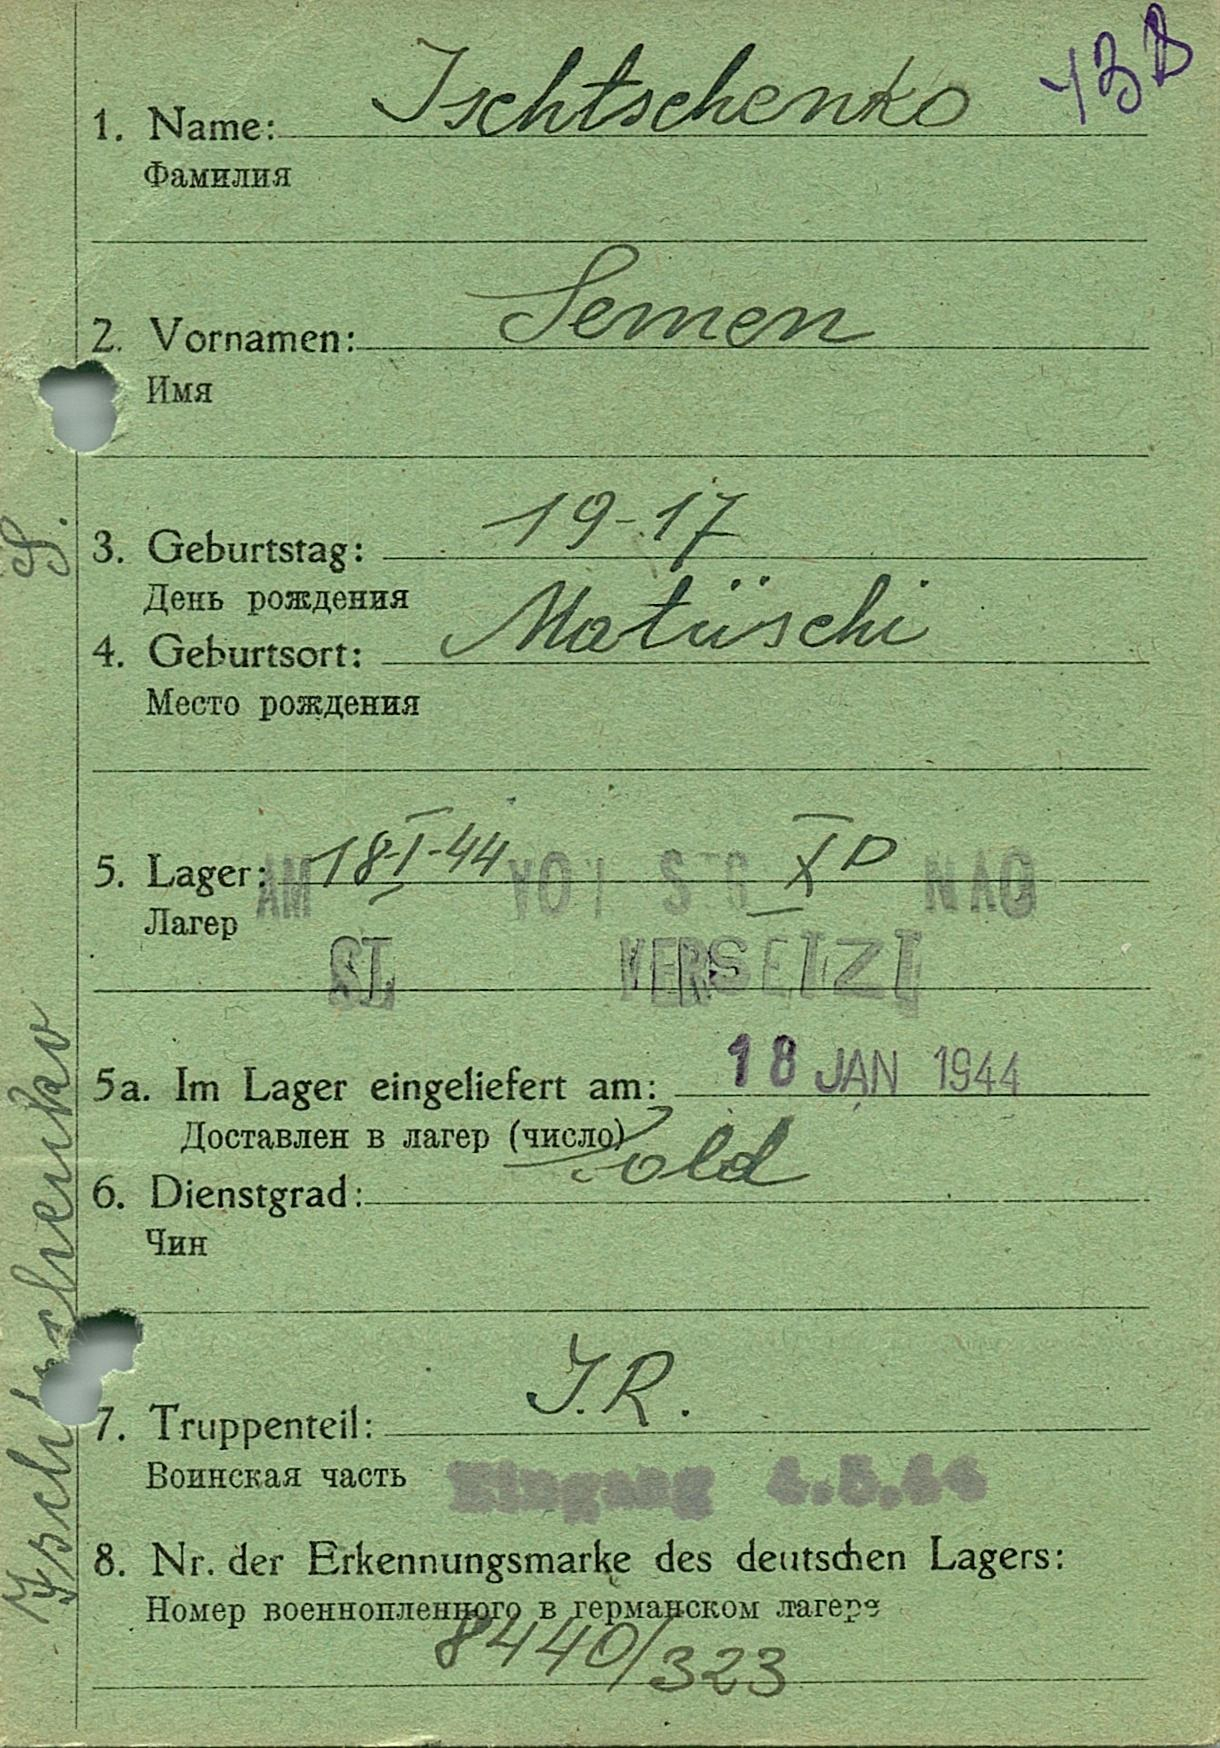 13 B
1. Name: Ischtschenko
Фамилия
2. Vornamen: Semen
Имя
3. Geburtstag: 19-17
День рождения
4. Geburtsort: Matüschi
Место рождения
5. Lager: AM 18-I-44 VOI ST G X D NAQ
Лагер
ST VERSETZT
5a. Im Lager eingeliefert am: 18 JAN 1944
Доставлен в лагер (число)
6. Dienstgrad: Sold
Чин
7. Truppenteil: I.R.
Воинская часть Eingang 4.5.44
8. Nr. der Erkennungsmarke des deutschen Lagers:
Номер военнопленного в германском лагере
8440/323
Ischtschenko S.